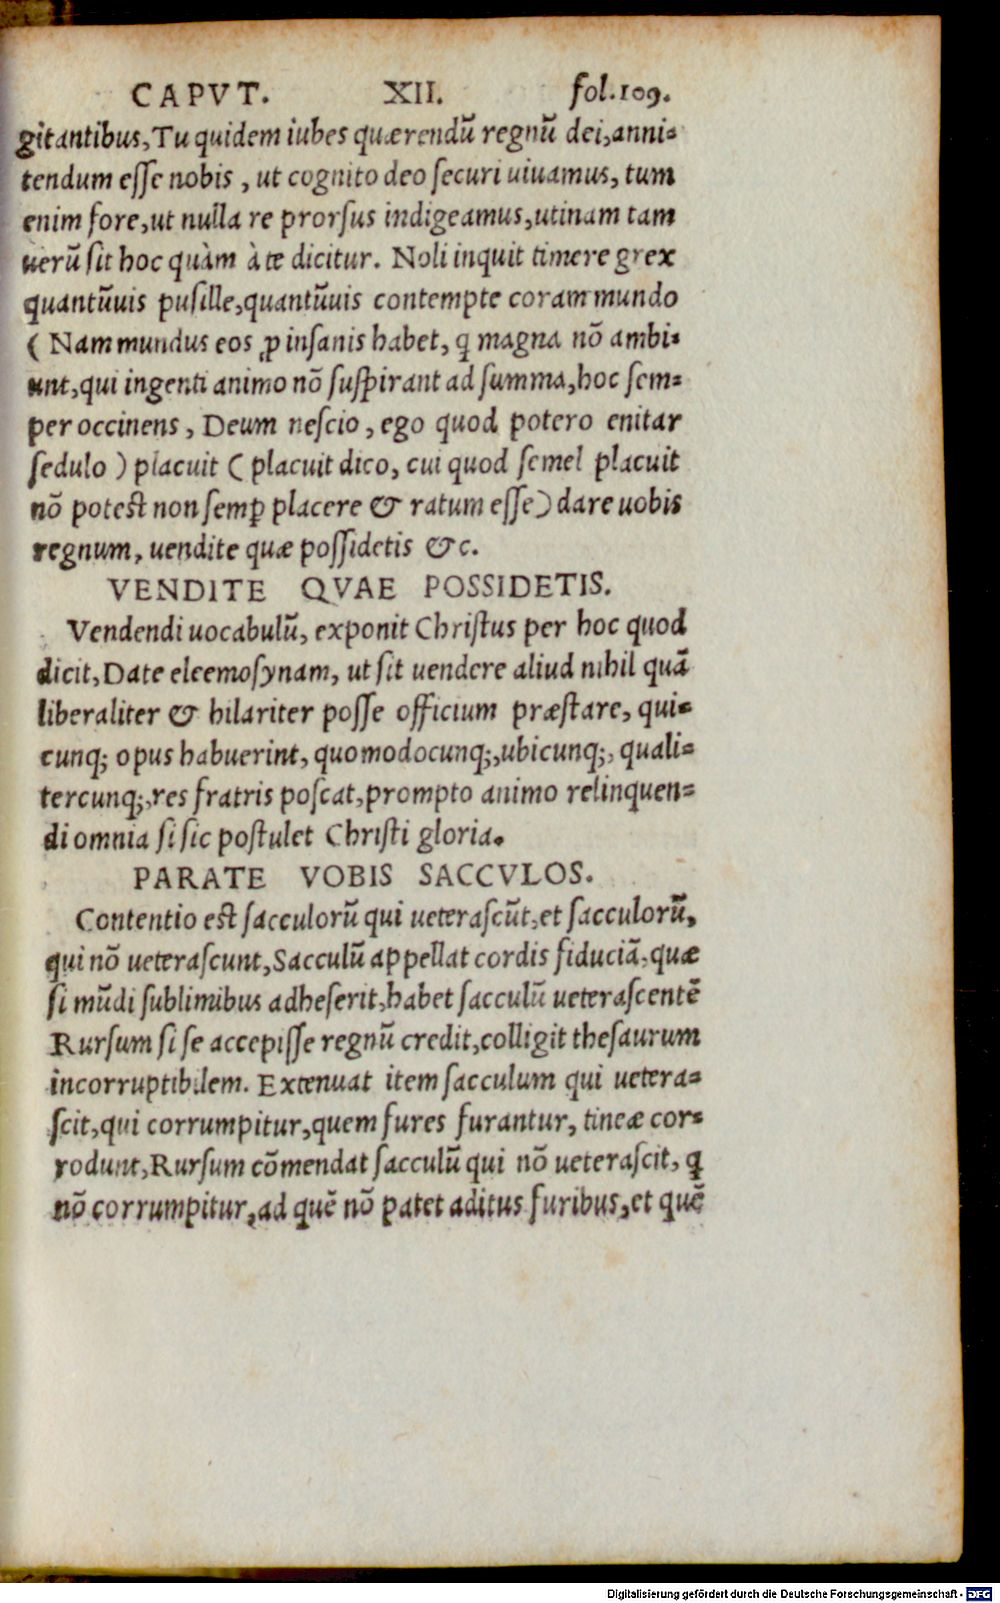 CAPVT. XII. fol.109.
gitantibus, Tu quidem iubes quærendũ regnũ dei, anni-
tendum esse nobis, ut cognito deo securi uiuamus, tum
enim fore, ut nulla re prorsus indigeamus, utinam tam
uerũ sit hoc quàm à te dicitur. Noli inquit timere grex
quantũuis pusille, quantũuis contempte coram mundo
( Nam mundus eos ꝓ insanis habet, q̃ magna nõ ambi-
unt, qui ingenti animo nõ suspirant ad summa, hoc sem-
per occinens, Deum nescio, ego quod potero enitar
sedulo ) placuit ( placuit dico, cui quod semel placuit
nõ potest non semꝑ placere & ratum esse) dare uobis
regnum, uendite quæ possidetis &c.
VENDITE QVAE POSSIDETIS.
Vendendi uocabulũ, exponit Christus per hoc quod
dicit, Date eleemosynam, ut sit uendere aliud nihil quã
liberaliter & hilariter posse officium præstare, qui-
cunq; opus habuerint, quomodocunq;, ubicunq;, quali-
tercunq;, res fratris poscat, prompto animo relinquen-
di omnia si sic postulet Christi gloria.
PARATE VOBIS SACCVLOS.
Contentio est sacculorũ qui ueterascũt, et sacculorũ,
qui nõ ueterascunt, Sacculũ appellat cordis fiduciã, quæ
si mũdi sublimibus adheserit, habet sacculũ ueterascentẽ
Rursum si se accepisse regnũ credit, colligit thesaurum
incorruptibilem. Extenuat item sacculum qui uetera-
scit, qui corrumpitur, quem fures furantur, tineæ cor-
rodunt, Rursum cõmendat sacculũ qui nõ ueterascit, q̃
nõ corrumpitur, ad quẽ nõ patet aditus furibus, et quẽ
Digitalisierung gefördert durch die Deutsche Forschungsgemeinschaft - DFG